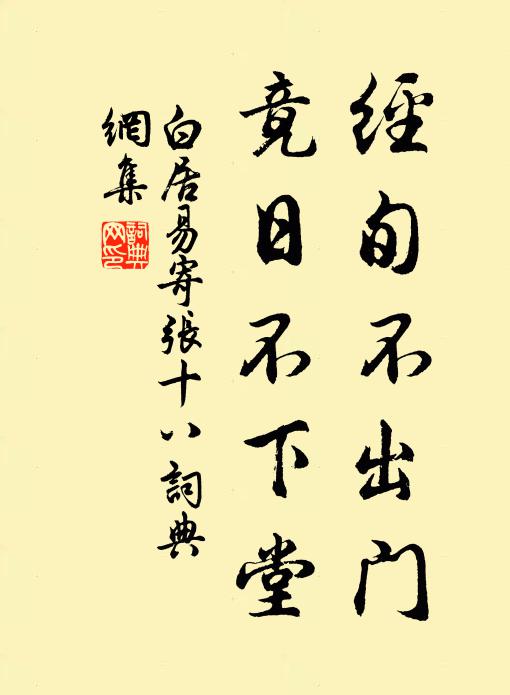 經旬不出门
竟日不下堂
白居易寄張十八詞典
網集
詞典
网印